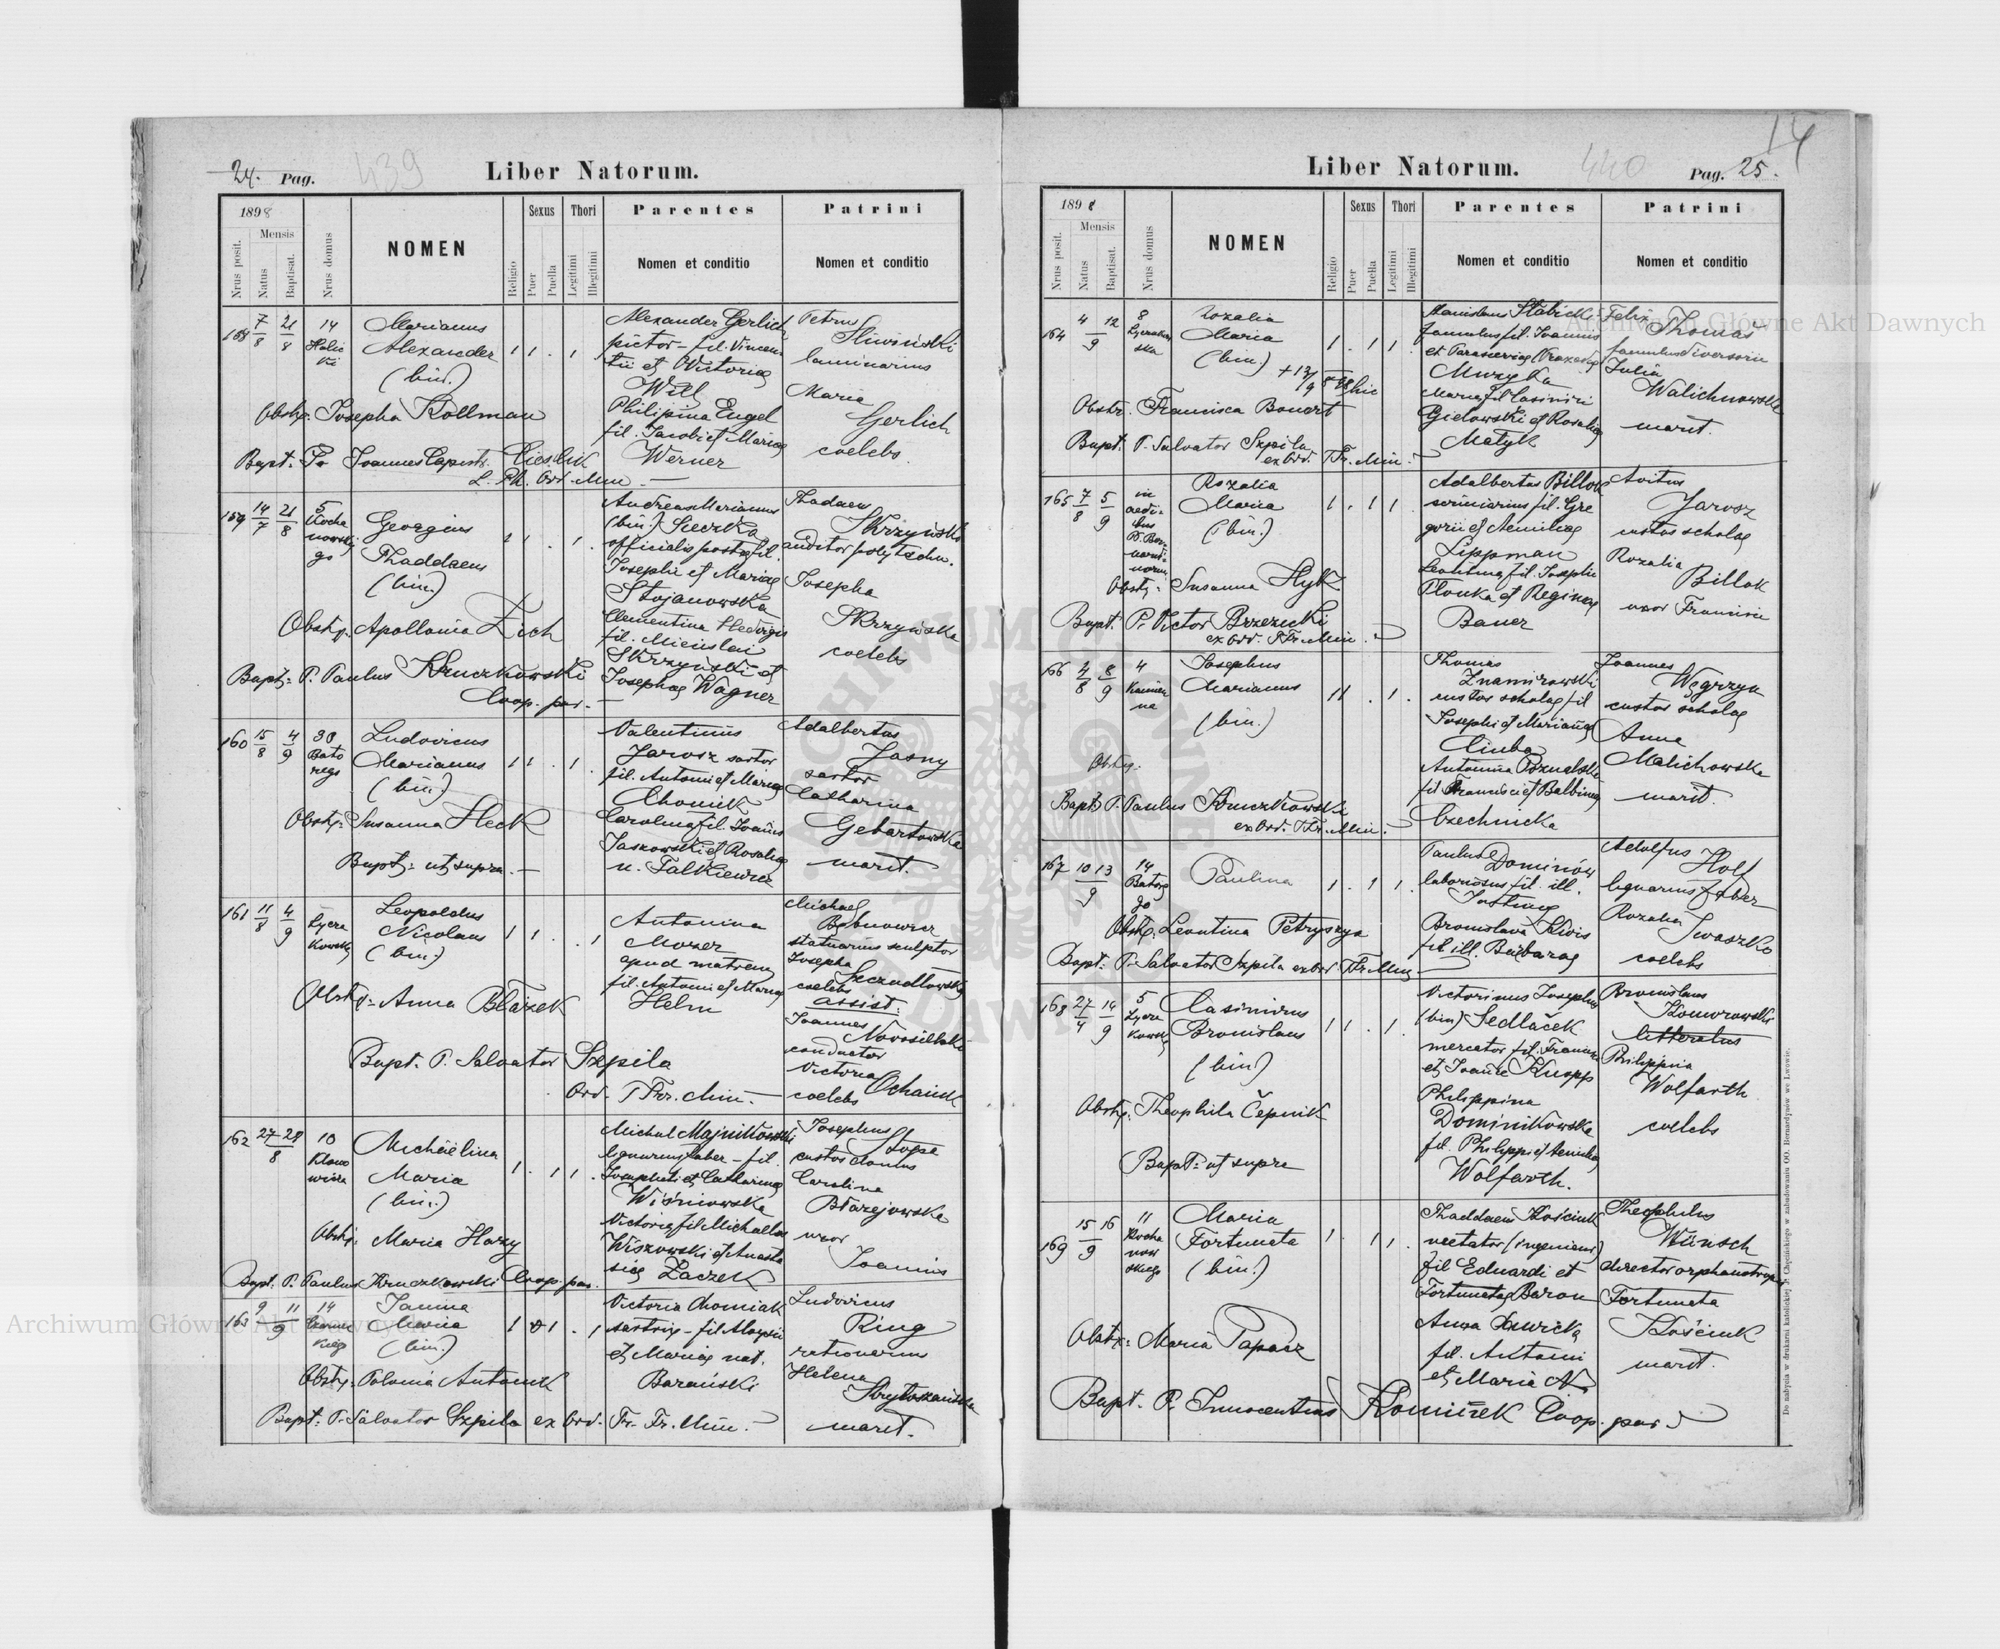 24. Pag. 439 Liber Natorum.
1898
Mensis
Nrus posit.
Natus
Baptisat.
Nrus domus
NOMEN
Religio
Sexus
Puer
Puella
Thori
Legitimi
Illegitimi
Parentes
Nomen et conditio
Patrini
Nomen et conditio
158 7/8 21/8 14
Marianus
Alexander
(bin.)
1 1 . 1 .
Alexander Gerlich
pictor - fil. Vincen-
tii et Victoriae
Will
Philipina Engel
fil. Jacobi et Mariae
Werner
Petrus
Śliwiński
Maria
Gerlich
coelebs.
Obstr: Josepha Kollman
Bapt: Joannes Capistr. Cieślik
Ord. Min. —
159 14/7 21/8 5
Kocha
nowskie
go
Georgius
Thaddaeus
(bin.)
Andreas Marianus
(bin.) Sieczka
officialis postae fil.
Josephi et Mariae
Stojanowska
Clementina Hedvigis
fil. Miecislai
Skrzyński et
Josephae Wagner
Thadaeus
Skrzyński
auditor polytechn.
Josepha
Skrzyńska
coelebs
Obstr: Apollonia Zich
Bapt: P. Paulus Kruczkowski
Coop. par. —
160 15/8 4/9 30
Bato
rego
Ludovicus
Marianus
(bin.)
1 1 . 1 .
Valentinus
Jarosz sartor
fil. Antonii et Mariae
Chomick
Carolina fil. Joannis
Jaszowski et Rosaliae
n. Falkiewicz
Adalbertus
Jasny
sartor
Catharina
Gebartowska
marit.
Obstr: Susanna Heck
Bapt: ut supra. —
161 11/8 4/9
Łycza
kowska
Leopoldus
Nicolaus
(bin.)
1 1 . . 1
Antonina
Moser
apud matrem
fil. Antonii et Mariae
Helm
Michael
statuarius sculptor
Josepha
coelebs
assist:
Joannes
conductor
Victoria
Ochaniek
coelebs
Obstr: Anna Błażek
Bapt. P. Salvator Szpila
Ord. FFr. Min. —
162 27 28/8 10
Klono
wicza
Michaëlina
Maria
(bin.)
1 . 1 1 .
Michael Majnikowski
lignarius faber - fil.
Josaphati et Catharinae
Wiśniowska
Victoria fil. Michaelis
Wiszowski et Anasta
siae Zaczek
Josephus
custos domus
Carolina
Błażejowska
uxor
Joannis
Obstr: Maria Hazy
Bapt. P. Paulus Kruczkowski Coop. par.
163 9 11/9 14
Janina
Maria
(bin.)
Victoria Chomiak
sartrix - fil. Aloysii
et Mariae nat.
Barański
Ludovicus
Ring
Helena
marit.
Obstr: Polonia Antonik
Bapt: P. Salvator Szpila ex Ord. Fr. Fr. Min. —
Liber Natorum. 440 Pag. 25.
14
1898
Mensis
Nrus posit.
Natus
Baptisat.
Nrus domus
NOMEN
Religio
Sexus
Puer
Puella
Thori
Legitimi
Illegitimi
Parentes
Nomen et conditio
Patrini
Nomen et conditio
164 4 12/9 8
Łyczakow
ska
Rozalia
Maria
(bin.)
1 . 1 1 .
Stanislaus
famulus fil. Joannis
et Parasceviae
Muzyka
Maria fil. Casimiri
Gielowski et Rosaliae
Matyk
Felix
Thomas
Julia
Walichnowska
marit.
Obstr. Francisca Bonert
Bapt. P. Salvator Szpila
ex Ord. FFr. Min.
165 7/8 5/9
in
aedi-
bus
Rozalia
Maria
(bin.)
1 . 1 1 .
Adalbertus Billok
scriniarius fil. Gre
gorii et Aemiliae
Lippman
Leontina fil. Josephi
Płonka et Reginae
Bauer
Avitus
Jarosz
custos scholae
Rozalia
Billok
uxor Francisci
Obstr: Susanna Hyk
Bapt. P. Victor Brzezicki
ex Ord. FFr. Min.
166 2/8 8/9 4
Kamien
na
Josephus
Marianus
(bin.)
Thomas
Znamirowski
custos scholae fil
Josephi et Mariannae
Ciuba
Antonina Poznalski
fil. Francisci et Balbinae
Czechnicka
Joannes
Węgrzyn
custos scholae
Anna
Malichowska
marit.
Obstr.
Bapt: P. Paulus Kruczkowski
ex Ord. FFr. Min.
167 10 13/9 14
Batore
go
Paulina
1 . 1 1 .
Paulus Dominów
laboriosus fil. ill.
Justinae
Bronislava
fil. ill. Barbarae
Adolfus Holf
lignarius faber
Rozalia
Iwaszko
coelebs
Obstr. Leontina Petryszyn
Bapt: P. Salvator Szpila ex Ord FFr Min.
168 27/4 14/9 5
Łycza
kowska
Casimirus
Bronislaus
(bin.)
1 1 . 1 .
Victorinus Josephus
(bin) Sedlaček
mercator fil. Francisci
et Joannae Knapp
Philippina
Dominikowska
fil. Philippi et Aemiliae
Wolfarth.
Bronislaus
Komorowski
litteratus
Philippina
Wolfarth
coelebs
Obstr. Theophila Čepnik
Bapt: ut supra
169 15 16/9 11
Kocha
now
skiego
Maria
Fortunata
(bin.)
1 . 1 1 .
Thaddaeus Kościuk
(ingenieur)
fil Eduardi et
Fortunatae Baron
Anna
fil. Antonii
et Maria N.
Theophilus
Wünsch
director orphanotroph
Fortunata
Kościuk
marit.
Obstr: Maria Paparz
Bapt. P. Innocentius Kominek Coop. par.
Do nabycia w drukarni katolickiej J. Chęcińskiego w zabudowaniu OO. Bernardynów we Lwowie.
Archiwum Główne Akt Dawnych
Archiwum Główne Akt Dawnych
ARCHIWUM GŁÓWNE AKT DAWNYCH